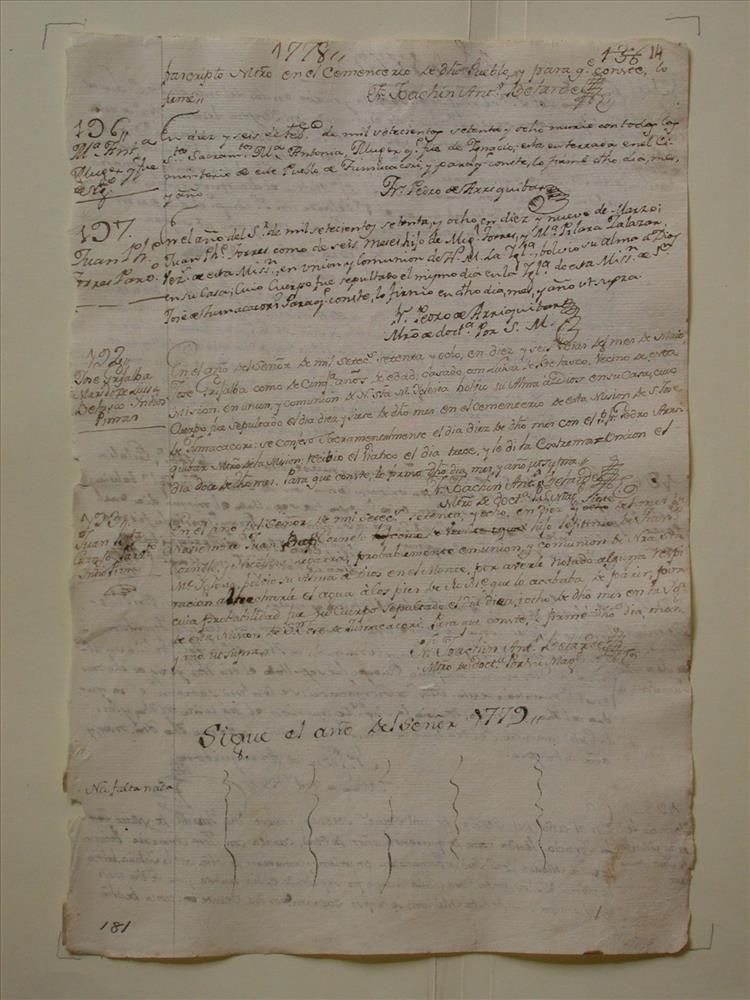 1778,,
136 14
parscripto Ntro en el Cementerio de dho Pueblo, y para q.e conste, lo
firmé,,
Fr. Joachin Ant.o Belarde
196,,
M.a Ant.a
Muger q.e fue
de
En diez y seis de de mil setecientos setenta y ocho murio con todos los
S.tos Sacram.tos M.a Antonia, Muger q.e fue de Ignacio, esta enterrada en el Ci-
minterio de este Pueblo de Tumacacori y para q.e conste, lo firmé dho dia, mes,
y año
Fr. Pedro de Arriquibar
197.
Juan
Torres Parv.o
En el año del S.r de mil setecientos setenta, y ocho, en diez y nueve de Marzo;
Juan Torres como de seis meses hijo de Mig.l Torres, y M.a Pilara Salazar,
Vez.s de esta Miss.n, en union y comunion de N.S.M. La Igl.a, bolvio su alma a Dios
en su Casa; Cuio Cuerpo fue sepultado el mismo dia en la Igl.a de esta Miss.n de S.n
Jose de Tumacacori Para q.e conste, lo firmo en dho dia, mes, y año ut supra.
Fr. Pedro de Arriquibar
Mrō de doct.a Por S. M.
Jose Grijalba
Marido de Luisa
Belasco Indios
Pimas
En el año del Señor de mil setec.s setenta y ocho, en diez y seis dias del mes de Maio,
Jose Grijalba como de Cinq.ta años de edad; casado con Luisa de Belasco, Vecino de esta
Mision, en union, y comunion de N. Sta M. Iglesia bolvio su Alma a Dios en su Casa; cuio
Cuerpo fue sepultado el dia diez, y siete de dho mes en el cementerio de esta Mision de S. Jose
de Tumacacori: se confeso Sacramentalmente el dia diez de dho mes con el P. Fr. Pedro Arri-
quibar Mtrō de la Mision: recibio el Viatico el dia trece, y le di la Extrema-Uncion el
dia doce de dho mes. Para que conste, lo firmé dho dia, mes, y año ut supra,,
Fr. Joachin Ant.o Belarde
Mtrō de doct.a
Juan
Indio Pima
En el año del Señor de mil Setec.s setenta, y ocho, en diez y ocho del mes de
Juan hijo legitimo de Juan
Cornelio, y Nicolasa probablemente en union, y comunion de Nra Sta
M.e Iglesia, bolvio su Alma a Dios en el Monte, por averle notado alguna respi-
racion el agua a los pies de su M.e que lo acababa de parir, por
cuia probabilidad fue su Cuerpo sepultado el dia diez, y ocho de dho mes en la Igl.a
de esta Mision de S.n Jose de Tumacacori. Para que conste, lo firmé dho dia, mes,
y año ut supra,,
Fr. Joachin Ant.o Belarde
Mtrō de doct.a Por su Mag.d
Sigue el año del Señor 1779,,
No falta nada
181